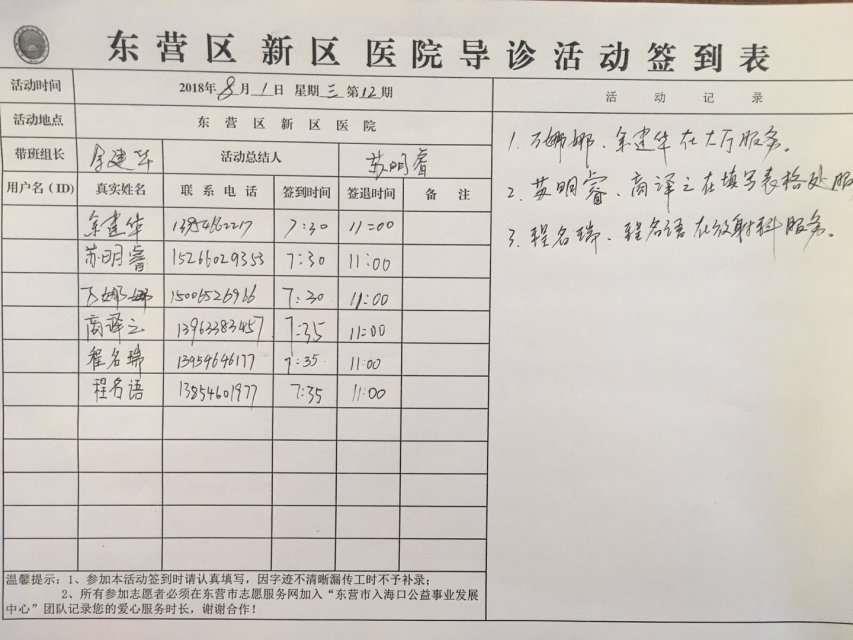 东营区新区医院导诊活动签到表
活动时间 2018年8月1日 星期三 第12期
活动地点 东营区新区医院
带班组长 余建华 活动总结人 苏明睿
用户名(ID) 真实姓名 联系电话 签到时间 签退时间 备注
余建华 13954662217 7:30 11:00
苏明睿 15266029353 7:30 11:00
娜娜 15006526966 7:30 11:00
商译之 13963383457 7:35 11:00
程名瑞 13954646177 7:35 11:00
程名语 13854601977 7:35 11:00
温馨提示：1、参加本活动签到时请认真填写，因字迹不清晰漏传工时不予补录；
2、所有参加志愿者必须在东营市志愿服务网加入“东营市入海口公益事业发展
中心”团队记录您的爱心服务时长，谢谢合作！
活动记录
1. 娜娜、余建华在大厅服务。
2. 苏明睿、商译之在填写表格处服
3. 程名瑞、程名语在放射科服务。